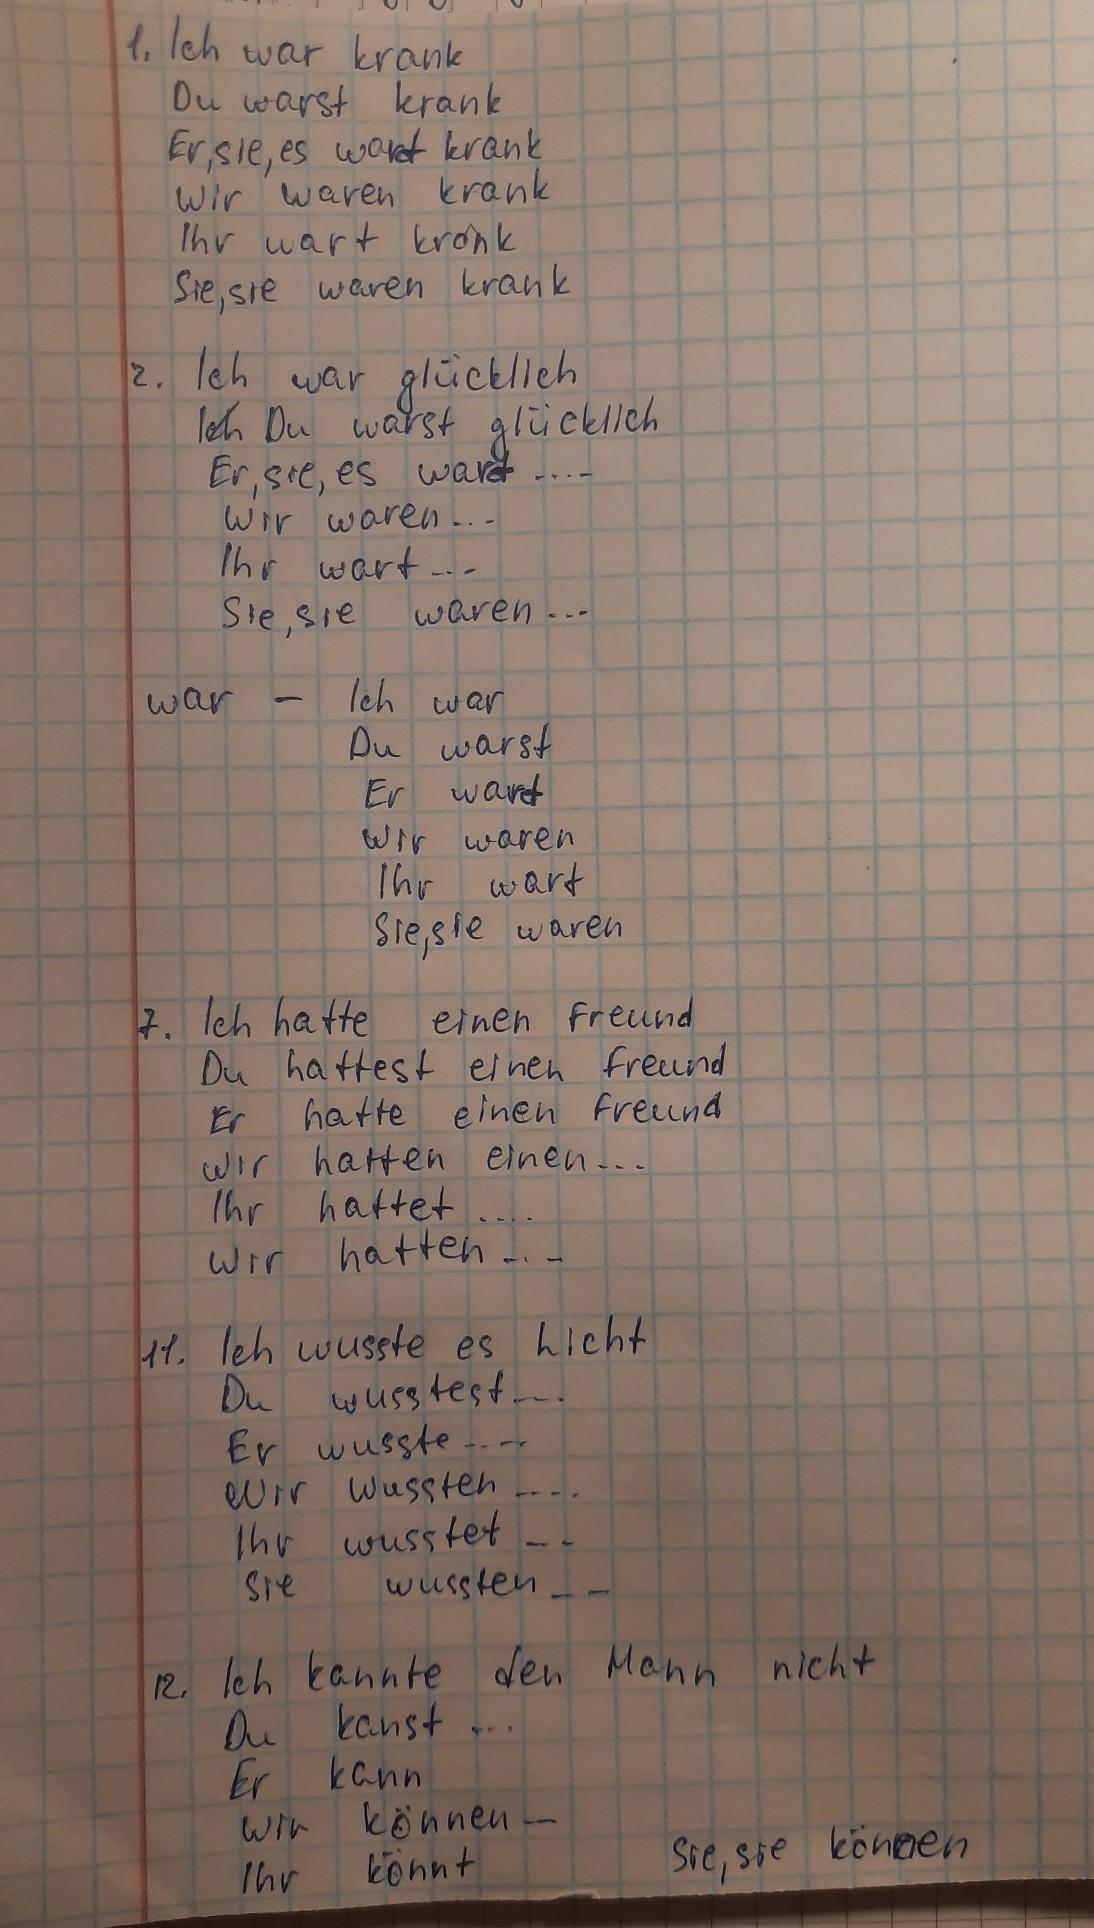 1. Ich war krank
Du warst krank
Er,sie,es war krank
Wir waren krank
Ihr wart krank
Sie,sie waren krank
2. Ich war glücklich
Ich Du warst glücklich
Er,sie,es war ....
Wir waren ...
Ihr wart ...
Sie,sie waren ...
war - Ich war
Du warst
Er war
Wir waren
Ihr wart
Sie,sie waren
7. Ich hatte einen Freund
Du hattest einen Freund
Er hatte einen Freund
Wir hatten einen ...
Ihr hattet ....
Wir hatten ...
11. Ich wusste es nicht
Du wusstest ....
Er wusste ....
Wir wussten ....
Ihr wusstet - -
Sie wussten - -
12. Ich kannte den Mann nicht
Du kanst ...
Er kann
Wir können -
Ihr könnt
Sie,sie können